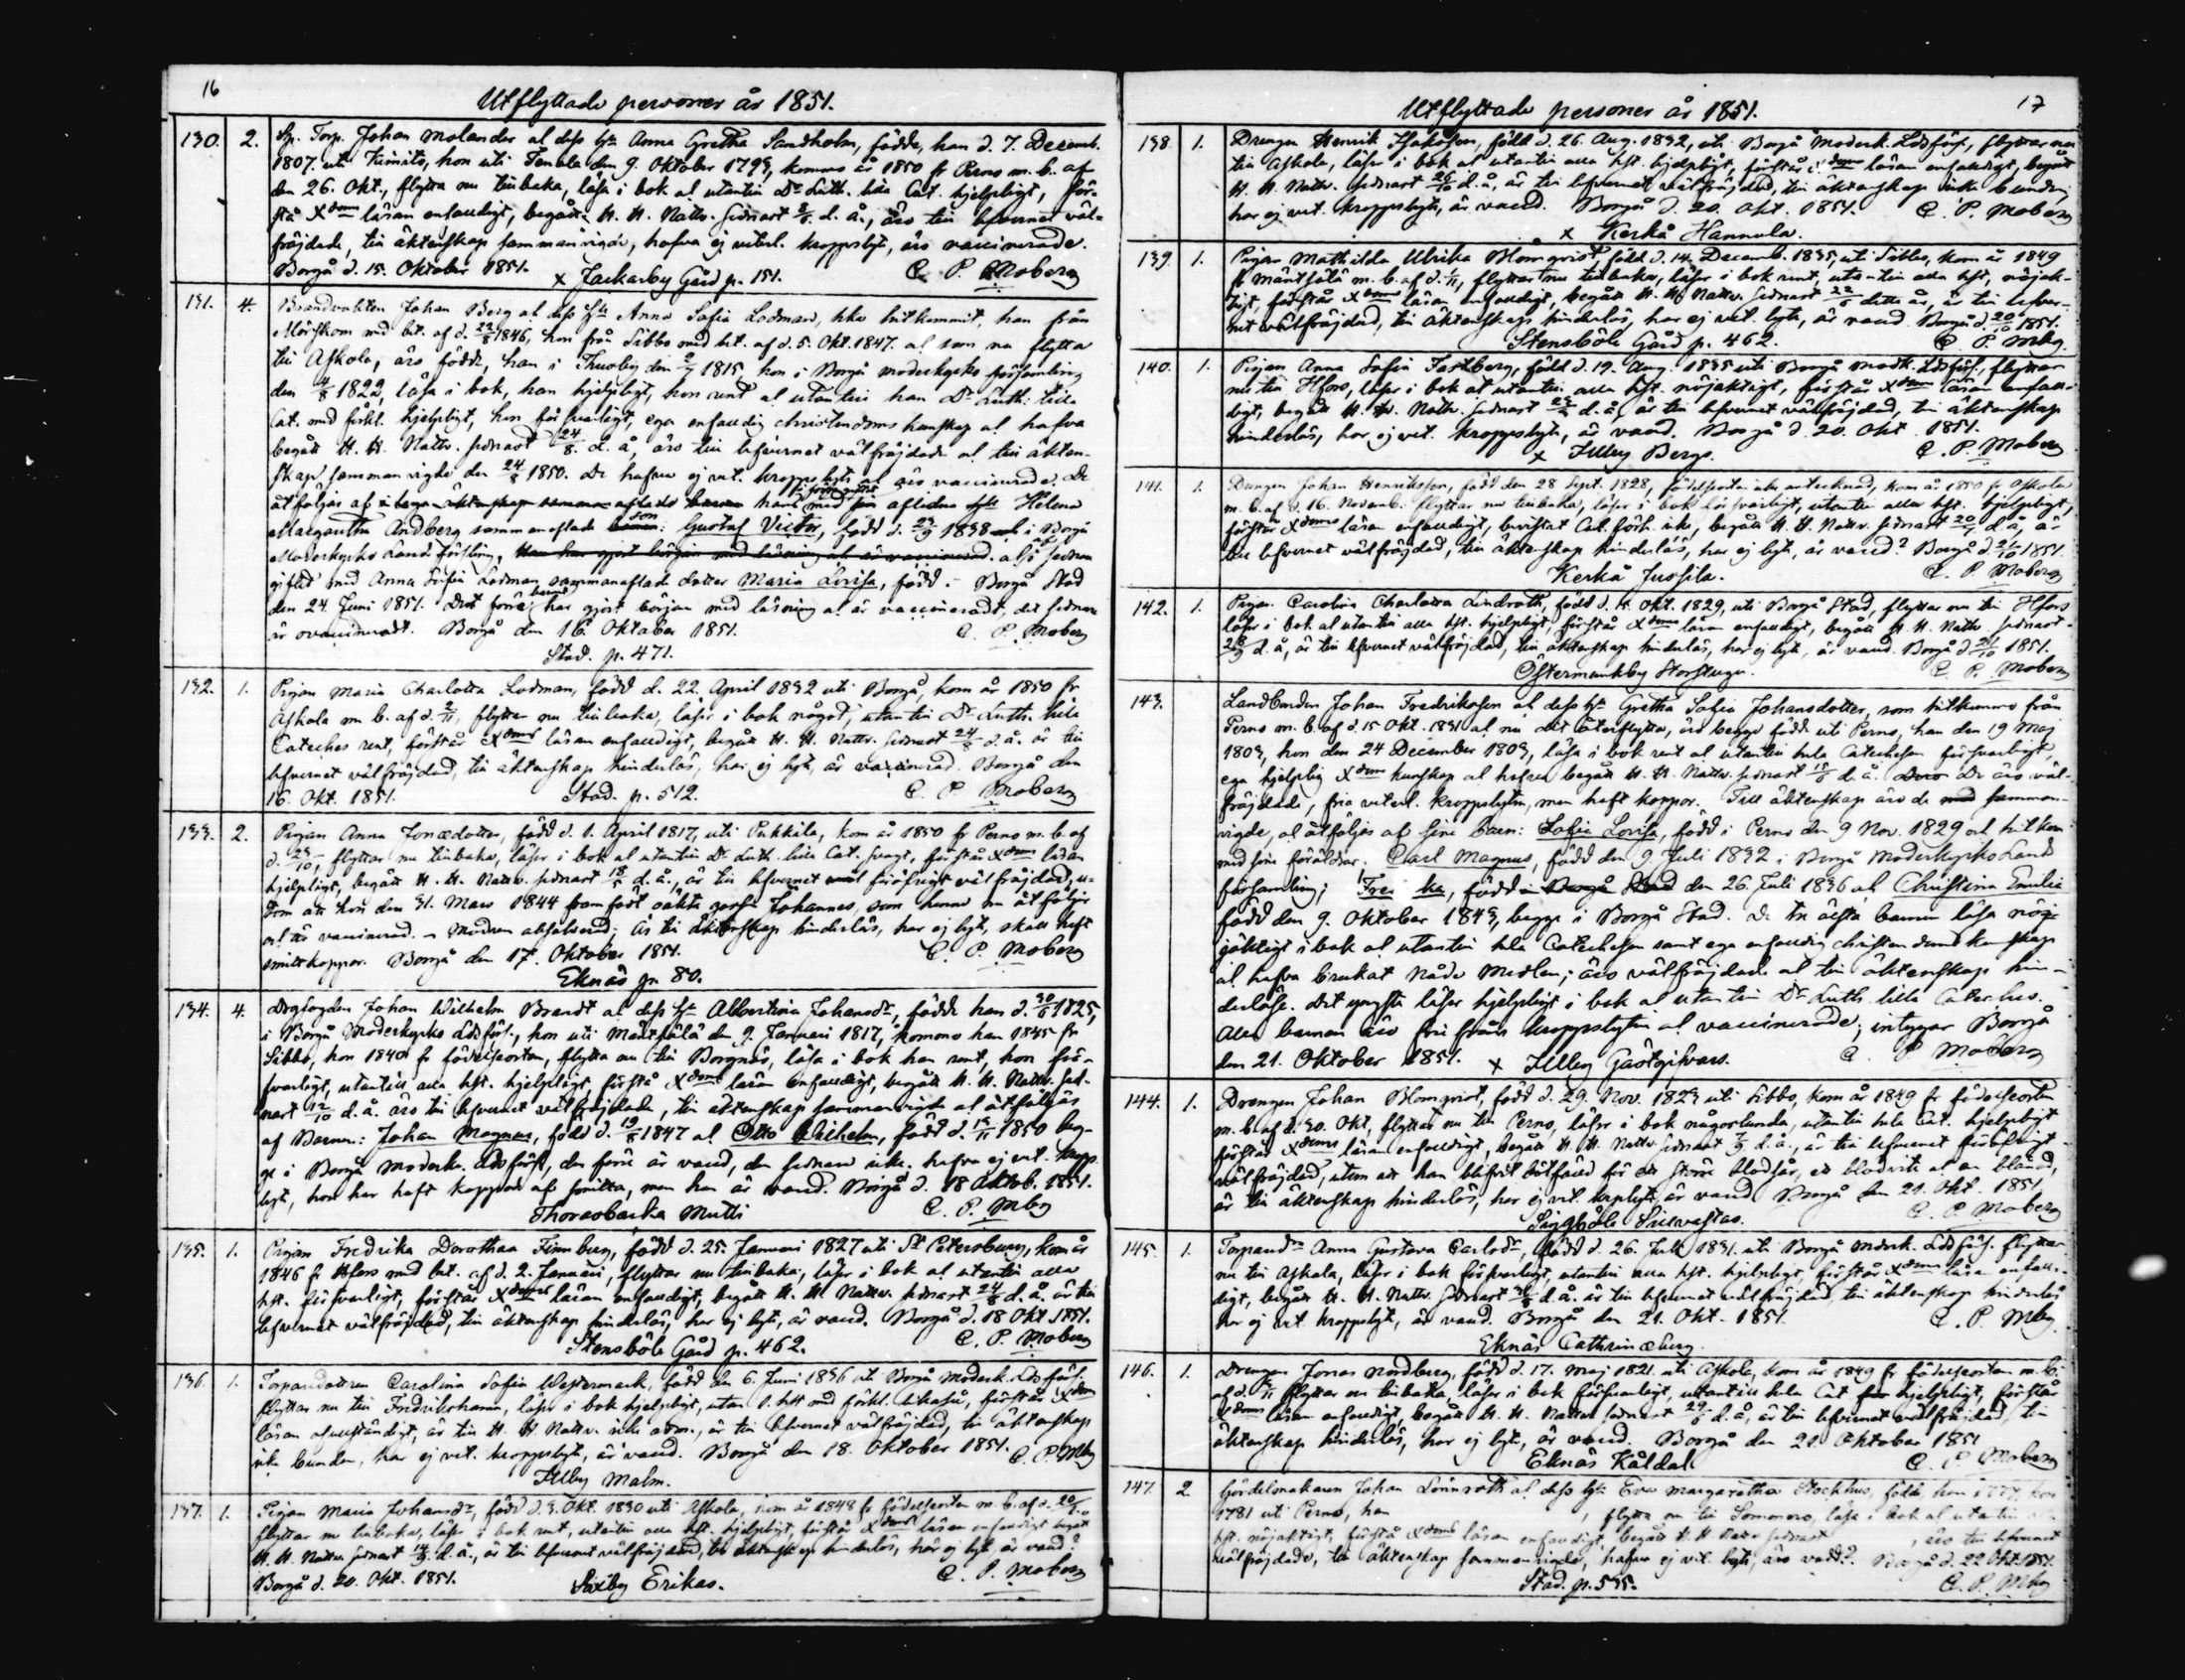 16
Utflyttade personer år 1851.
130. 2. Sp. Torp. Johan Molander at dess h:u Anna Gretha Sandholm, födde, han d. 7. Decemb.
1807. uti Kimito, hon uti Tenala den 9. Oktober 1793, komne år 1850 fr Perno m. b. af
den 26. Okt., flytta nu tillbaka, läsa i bok al utantill D:r Luth. lilla Cat. hjelpligt, för-
stå Xdoms läran enfaldigt, begått H. H. Nattv. sednast d. å., äro till lefvernet väl-
fräjdade, till äktenskap sammanvigde, hafva ej veterl. kroppslyte, äro vaccinerade.
Borgå d. 15. Oktober 1851. x Jackarby Gård p. 151. C. P. Moberg
131. 4. Brandvakten Johan Berg at dess h:u Anna Sofia Lodman, hvilka hitkommit, han från
Mörskom med bet. af d. 22/8 1846, hon från Sibbo med bet. af d. 5. Okt. 1847. al som nu flytta
till Askola, äro födde, han i Thusby den 1815, hon i Borgå moderkyrko församling
den 4/8 1822, läsa i bok, han hjelpligt, hon rent al utantill han D:r Luth: lilla
Cat. med förkl. hjelpligt, hon försvarligt, ega enfaldig christendoms kunskap al hafva
begått H. H. Nattv. sednast 24/8. d. å, äro till lefvernet välfräjdade al till äkten-
skap sammanvigde den 24/ 1850. De hafva ej vet. kroppslyte al äro vaccinerade. De
åtföljas af hans med aflidna Helena
Margaretha Andberg sammanaflade son: Gustaf Victor, född d. 23/9 1838 i Borgå
Moderkyrko Lands Försling, af sednare
giftet med Anna Sofia Lodman sammanaflade dotter Maria Lovisa, född i Borgå Stad
den 24. Juni 1851. Det förra barnet har gjort början med läsning al är vaccineradt, det sednare
är ovaccineradt. Borgå den 16. Oktober 1851. C. P. Moberg
Stad. p. 471.
132. 1. Pigan Maria Charlotta Lodman, född d. 22. April 1832 uti Borgå, kom år 1850 fr
Askola m. b. af d. 2/11, flyttar nu tillbaka, läser i bok något, utantill D:r Luth. lilla
Cateches rent, förstår Xdoms läran enfaldigt, begått H. H. Nattv. sednast 24/8 d. å. är till
lefvernet välfräjdad, till äktenskap hinderlös, har ej lyte, är vaccinerad. Borgå den
16. Okt. 1851. Stad. p. 512. C. P. Moberg
133. 2. Pigan Anna Jonædotter, född d. 1. April 1817, uti Pukkila, kom år 1850 fr Perno m. b. af
d. 23/10, flyttar nu tillbaka, läser i bok al utantill D:r Luth. lilla Cat. svagt, förstår Xdoms läran
hjelpligt, begått H. H. Nattv. sednast 18/5 d. å., är till lefvernet för öfrigt välfräjdad, u-
tom att hon den 31. Mars 1844 framfödt oäkta gossen Johannes, som henne nu åtföljer
och är vaccinerad. – Modren absolverad; är till äktenskap hinderlös, har ej lyte, skall haft
smittkoppor. Borgå den 17. Oktober 1851. C. P. Moberg
Eknäs p. 80.
134. 4. Johan Wilhelm Brandt al dess h:u Albertina Johansdr, födde han d. 30/6 1825,
i Borgå Moderkyrko Ldsförs., hon uti Mäntsälä den 9. Januari 1817, komne han 1845 fr
Sibbo, hon 1840 fr födelseorten, flytta nu till Borgnäs, läsa i bok han rent, hon för-
svarligt, utantill alla hft. hjelpligt, förstå Xdoms läran enfaldigt, begått H. H. Nattv. sed-
nast 12/10 d. å. äro till lefvernet välfräjdade, till äktenskap sammanvigde al åtföljas
af Barnen: Johan Magnus, född d. 19/5 1847 al Otto Wilhelm, född d. 15/11 1850 beg-
ge i Borgå moderk. Ldsförs., den förre är vaccd, den sednare icke. hafva ej vet. kropps
lyte, hon har haft koppor af smitta, men han är vaccd. Borgå d. 18 Oktob. 1851.
Thorasbacka Mutti C. P. Mbg
135. 1. Pigan Fredrika Dorothea Finnberg, född d. 25. Januari 1827 uti S:t Petersburg, kom år
1846 fr Hfors med bet. af d. 2. Januari, flyttar nu tillbaka, läser i bok al utantill alla
hft. försvarligt, förstår Xdoms läran enfaldigt, begått H. H. Nattv. sednast 24/8 d. å. är till
lefvernet välfräjdad, till äktenskap hinderlös, har ej lyte, är vaccd. Borgå d. 18 Okt 1851.
Stensböle Gård p. 462. C. P. Moberg
136. 1. Torparedottren Carolina Sofia Westermark, född den 6. Juni 1836 uti Borgå Moderk. Lds förs.
flyttar nu till Fredrikshamn, läser i bok hjelpligt, utan 1. hft med förkl. likaså, förstår Xdom
läran ofullständigt, är till H. H. Nattv. icke adm., är till lefvernet välfräjdad, till äktenskap
icke bunden, har ej vet. kroppslyte, är vaccd. Borgå den 18. Oktober 1851. C. P. Mbg
Illby Malm.
137. 1. Pigan Maria Johansdr, född d. 3. Okt. 1830 uti Askola, kom år 1848 fr födelseorten m. b. af d.
flyttar nu tillbaka, läser i bok rent, utantill alla hft. hjelpligt, förstår Xdoms läran enfaldigt begått
H. H. Nattv. sednast 14/9 d. å., är till lefvernet välfräjdad, till äktenskap hinderlös, har ej lyte, är vaccd?
Borgå d. 20. Okt. 1851. Saxby Erikas. C. P. Moberg
17
Utflyttade personer år 1851.
138. 1. Drengen Henrik Isaksson, född d. 26. Aug. 1832, uti Borgå Moderk. Ldsförs, flyttar nu
till Askola, läser i bok al utantill alla hft. hjelpligt, förstår Xdoms läran enfaldigt, begått
H. H. Nattv. sednast 26/10 d. å, är till lefvernet välfräjdad, till äktenskap icke bunden,
har ej vet. kroppslyte, är vaccd. Borgå d. 20. Okt. 1851. C. P. Moberg
x Kerko Hannula.
139. 1. Pigan Mathilda Ulrika Blomqvist, född d. 14. Decemb. 1835, uti Sibbo, kom år 1849
fr Mäntsälä m. b. af d. 1/11, flyttar nu tillbaka, läser i bok rent, utantill alla hft, nöjak-
tigt, förstår Xdoms läran enfaldigt, begått H. H. Nattv. sednast 22/6 detta år, är till lefver-
net välfräjdad, till äktenskap hinderlös, har ej vet. lyte, är vaccd. Borgå d. 20/10 1851.
Stensböle Gård p. 462. C. P. Mbg.
140. 1. Pigan Anna Sofia Fastberg, född d. 19. Aug. 1835 uti Borgå modk. Ldsförs, flyttar
nu till Hfors, läser i bok al utantill alla hft. nöjaktigt, förstår Xdoms läran enfal-
digt, begått H. H. Nattv. sednast d. å, är till lefvernet välfräjdad, till äktenskap
hinderlös, har ej vet. kroppslyte, är vaccd. Borgå d. 20. Okt. 1851.
x Illby Bergs. C. P. Moberg
141. 1. Drengen Johan Henriksson, född den 28 Sept. 1828, födelseorten icke antecknad, kom år 1850 fr Askola
m. b. af d. 16. Novemb. flyttar nu tillbaka, läser i bok försvarligt, utantill alla hft. hjelpligt,
förstår Xdoms läran enfaldigt, bevistat Cat. förh. icke, begått H. H. Nattv. sednast d. å, är
till lefvernet välfräjdad, till äktenskap hinderlös, har ej lyte, är vaccd? Borgå d. 21/10 1851.
Kerko Jussila. C. P. Moberg
142. 1. Pigan Carolina Charlotta Lindroth, född d. Okt. 1829, uti Borgå Stad, flyttar nu till Hfors
läser i bok al utantill alla hft. hjelpligt, förstår Xdoms läran enfaldigt, begått H. H. Nattv. sednast
28/9 d. å, är till lefvernet välfräjdad, till äktenskap hinderlös, har ej lyte, är vaccd. Borgå d. 21/10 1851.
Östermunkby Storstugu. C. P. Moberg
143. Landbonden Johan Fredriksson al dess h:u Gretha Sofia Johansdotter, som hitkomne från
Perno m. b. af d. 15 Okt. 1831 al nu dit återflytta, äro begge födde uti Perno, han den 19 Maj
1803, hon den 24 December 1803, läsa i bok rent al utantill hela Catechesen försvarligt,
ega hjelplig Xdoms kunskap al hafva begått H. H. Nattv. sednast 15/6 d. å. De äro väl-
fräjdade, fria veterl. kroppslyten, men haft koppor. Till äktenskap äro de samman-
vigde, al åtföljas af sine barn: Sofia Lovisa, född i Perno den 9 Nov. 1829 och hitkom
med sine föräldrar; Carl Magnus, född den 9. Juli 1832 i Borgå Moderkyrko Lands
församling; född den 26. Juli 1836 al Christina Emilia
född den 9. Oktober 1843, begge i Borgå Stad. De tre äldsta barnen läsa nöj-
gaktigt i bok al utantill hela Catechesen samt ega enfaldig christendoms kunskap
al hafva brukat Nåde Medlen; äro välfräjdade al till äktenskap hin-
derlöse. Det yngsta läser hjelpligt i bok al utantill D:r Luth. lilla Cateches.
Alla barnen äro fria från kroppslyten al vaccinerade; intygar Borgå
den 21. Oktober 1851. x Illby Gästgifvars. C. P. Moberg
144. 1. Drengen Johan Blomqvist, född d. 29. Nov. 1823 uti Sibbo, kom år 1849 fr födelseorten
m. b. af d. 30. Okt, flyttar nu till Perno, läser i bok någorlunda, utantill hela Cat. hjelpligt
förstår Xdoms läran enfaldigt, begått H. H. Nattv. sednast d. å., är till lefvernet för öfrigt
välfräjdad, utom att han blifvit bötfäld för större blodsår, ett blodvite al en blånad,
är till äktenskap hinderlös, har ej vet. lyte, är vaccd. Borgå den 21. Okt. 1851.
C. P. Moberg
145. 1. Torparedr Anna Gustava Carlsdr, född d. 26. Juli 1831 uti Borgå Moderk. Ldsförs. flyttar
nu till Askola, läser i bok försvarligt, utantill alla hft. hjelpligt, förstår Xdoms läran enfal-
digt, begått H. H. Nattv. sednast d. å. är till lefvernet välfräjdad, till äktenskap hinderlös
har ej vet kroppslyte, är vaccd. Borgå den 21. Okt. 1851. C. P. Mbg.
Eknäs Cathrinæberg.
146. 1. Drengen Jonas Nordberg, född d. 17. Maj 1821. uti Askola, kom år 1849 fr födelseorten m. b.
af d. flyttar nu tillbaka, läser i bok försvarligt, utantill hela Cat hjelpligt, förstår
Xdoms läran enfaldigt, begått H. H. Nattv. sednast 29/6 d. å, är till lefvernet välfräjdad, till
äktenskap hinderlös, har ej lyte, är vaccd. Borgå den 21. Oktober 1851
Eknäs Kåldal C. P. Moberg
147. 2 Gördelmakaren Johan Lönnroth al dess h:u Eva Margaretha född, han 1777, hon
1781 uti Perno, han , flytta nu till Sommero, läsa i bok al utantill
hft. nöjaktigt, förstå Xdoms läran enfaldigt, begått H. H. Nattv. sednast , äro till lefvernet
välfräjdade, till äktenskap sammanvigde, hafva ej vet. lyte, äro vaccd?. Borgå d. 22 Okt. 1851.
Stad. p. 535. C. P. Mbg